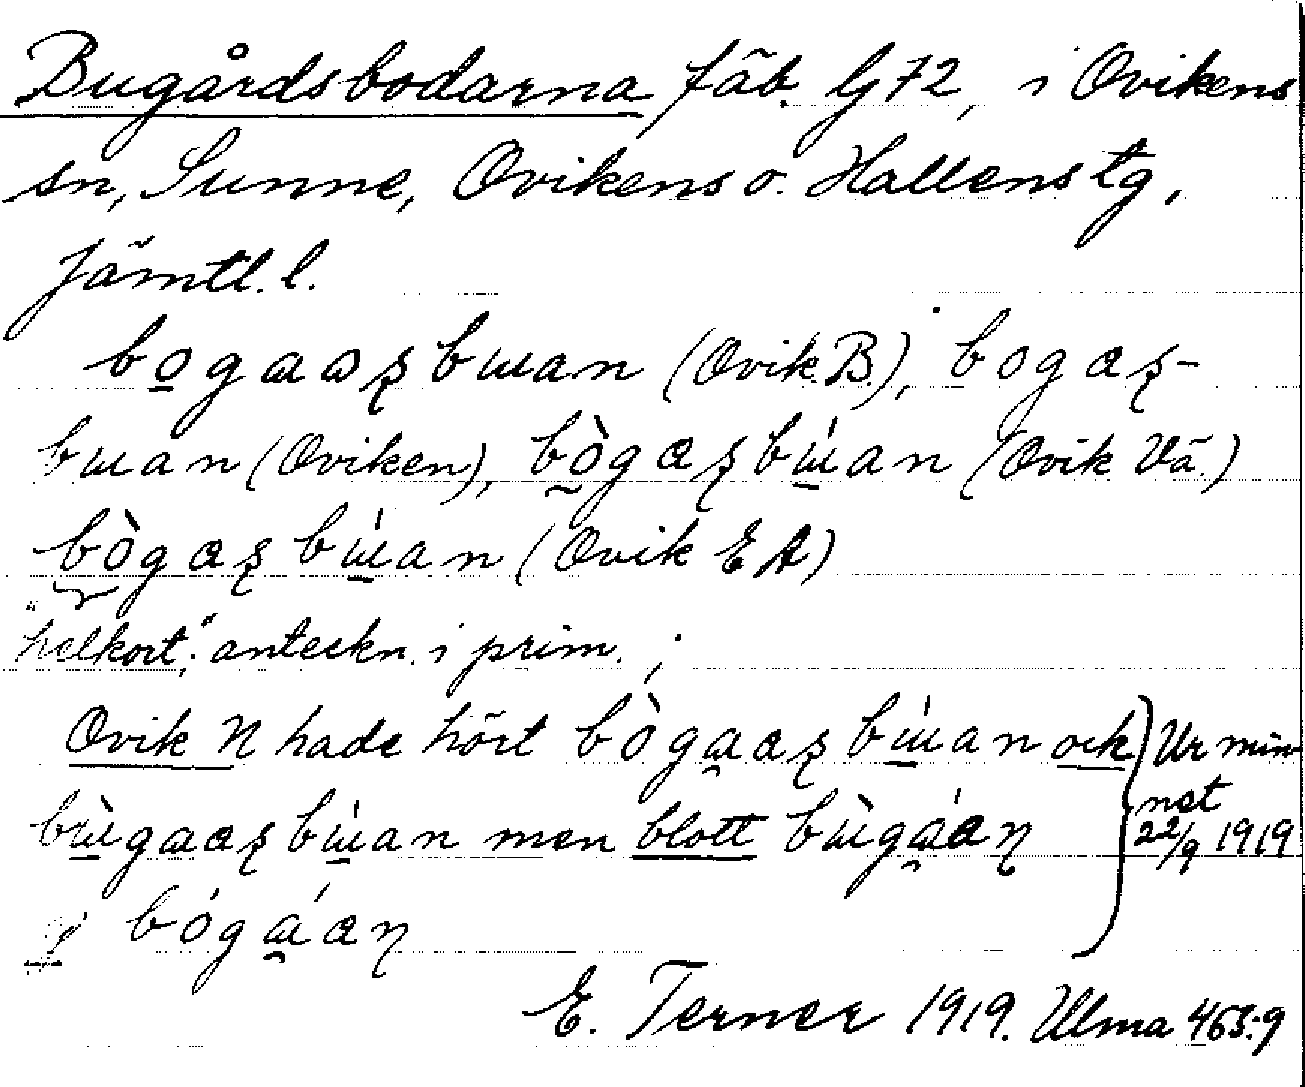 Bugårdsbodarna fäb. G72, i Ovikens
sn, Sunne, Ovikens o. Hallens tg,
Jämtl. l.
bogaaʂbɯan (Ovik.B.), bogaʂ-
bɯan (Oviken), bògaʂbɯ́an (Ovik Vä.)
bògaʂbɯ́an (Ovik EA)
"helkort." anteckn. i prim. ;
Ovik N hade hört bògaaʂbɯ́an ock
bɯ̀gaaʂbɯ́an men blott bɯ̀gáaɳ
bógáaɳ
Ur min-
net
22/9 1919
E. Terner 1919. Ulma 463:9